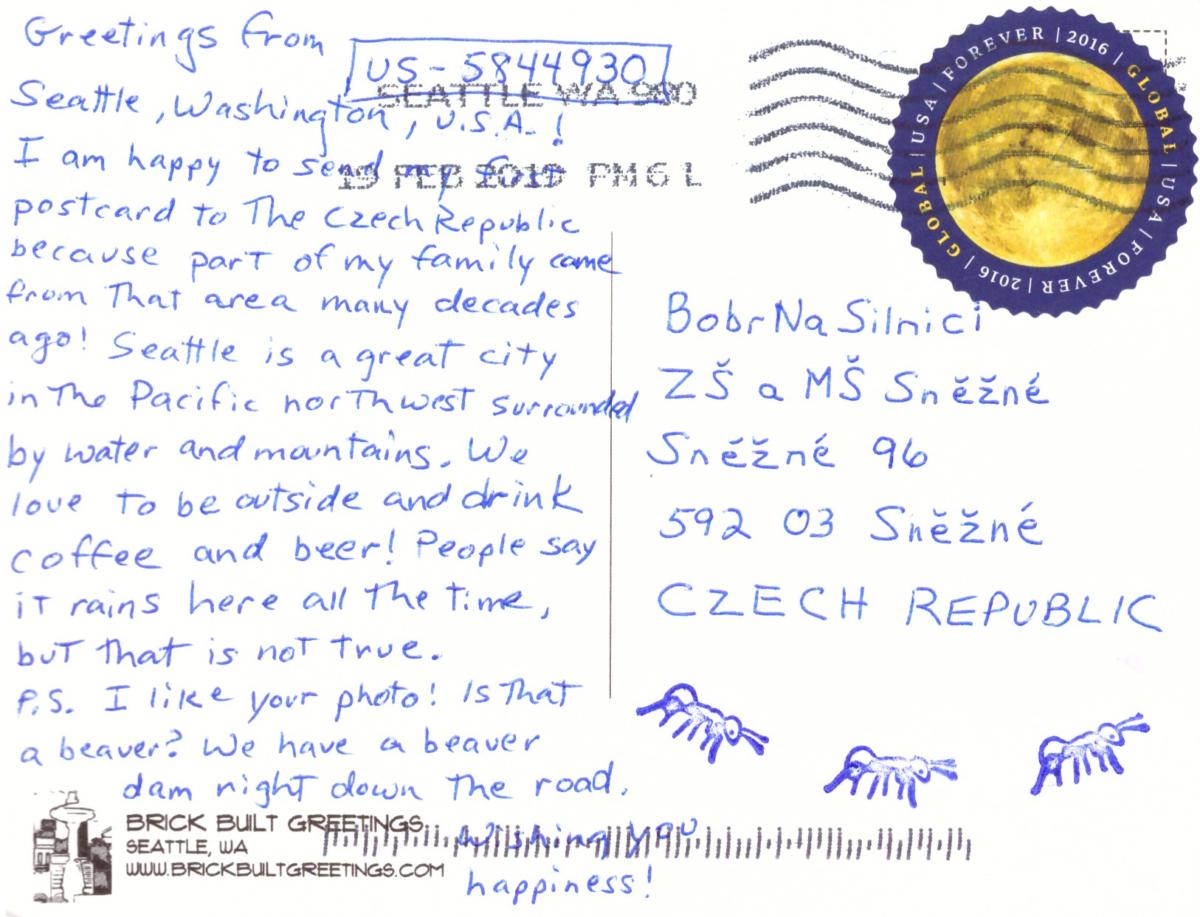 Greetings from
US-5844930
Seattle, Washington, U.S.A.!
SEATTLE WA 980
I am happy to send my first
19 FEB 2019 PM 6 L
postcard to The Czech Republic
because part of my family came
from That area many decades
ago! Seattle is a great city
in The Pacific northwest surrounded
by water and mountains. We
love to be outside and drink
coffee and beer! People say
it rains here all The time,
but That is not true.
P.S. I like your photo! Is That
a beaver? We have a beaver
dam right down The road.
Wishing you
happiness!
BRICK BUILT GREETINGS
SEATTLE, WA
WWW.BRICKBUILTGREETINGS.COM
GLOBAL | USA | FOREVER | 2016 | GLOBAL | USA | FOREVER | 2016 |
Bobr Na Silnici
ZŠ a MŠ Sněžné
Sněžné 96
592 03 Sněžné
CZECH REPUBLIC